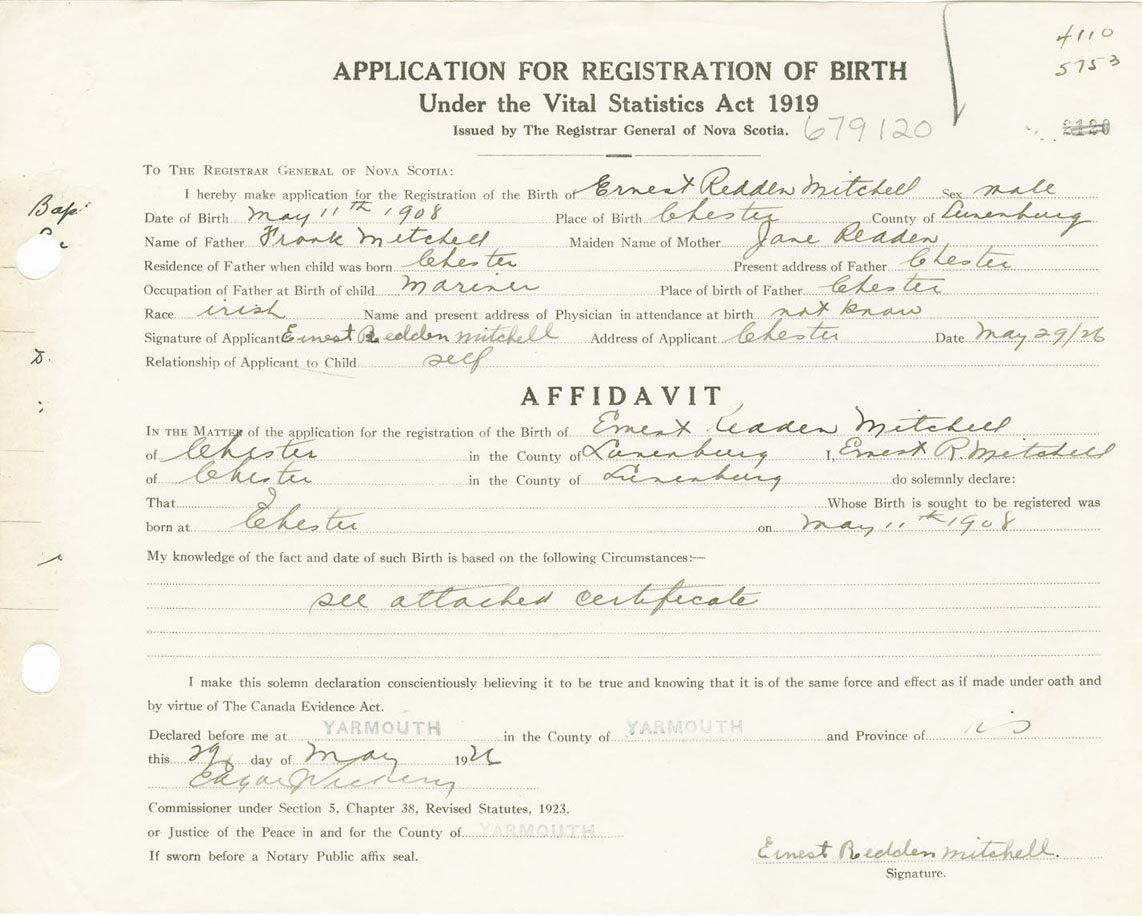 4110
5753
APPLICATION FOR REGISTRATION OF BIRTH
Under the Vital Statistics Act 1919
Issued by The Registrar General of Nova Scotia. 679120
TO THE REGISTRAR GENERAL OF NOVA SCOTIA:
I hereby make application for the Registration of the Birth of Ernest Redden Mitchell Sex male
Date of Birth May 11th 1908 Place of Birth Chester County of Lunenburg
Name of Father Frank Mitchell Maiden Name of Mother Jane Redden
Residence of Father when child was born Chester Present address of Father Chester
Occupation of Father at Birth of child Mariner Place of birth of Father Chester
Race irish Name and present address of Physician in attendance at birth not know
Signature of Applicant Ernest Redden Mitchell Address of Applicant Chester Date May 29/26
Relationship of Applicant to Child self
AFFIDAVIT
IN THE MATTER of the application for the registration of the Birth of Ernest Redden Mitchell
of Chester in the County of Lunenburg I, Ernest R. Mitchell
of Chester in the County of Lunenburg do solemnly declare:
That I Whose Birth is sought to be registered was
born at Chester on May 11th 1908
My knowledge of the fact and date of such Birth is based on the following Circumstances:—
see attached certificate
I make this solemn declaration conscientiously believing it to be true and knowing that it is of the same force and effect as if made under oath and
by virtue of The Canada Evidence Act.
Declared before me at YARMOUTH in the County of YARMOUTH and Province of
this 29 day of May 1926
Commissioner under Section 5, Chapter 38, Revised Statutes, 1923.
or Justice of the Peace in and for the County of YARMOUTH
If sworn before a Notary Public affix seal.
Ernest Redden Mitchell.
Signature.